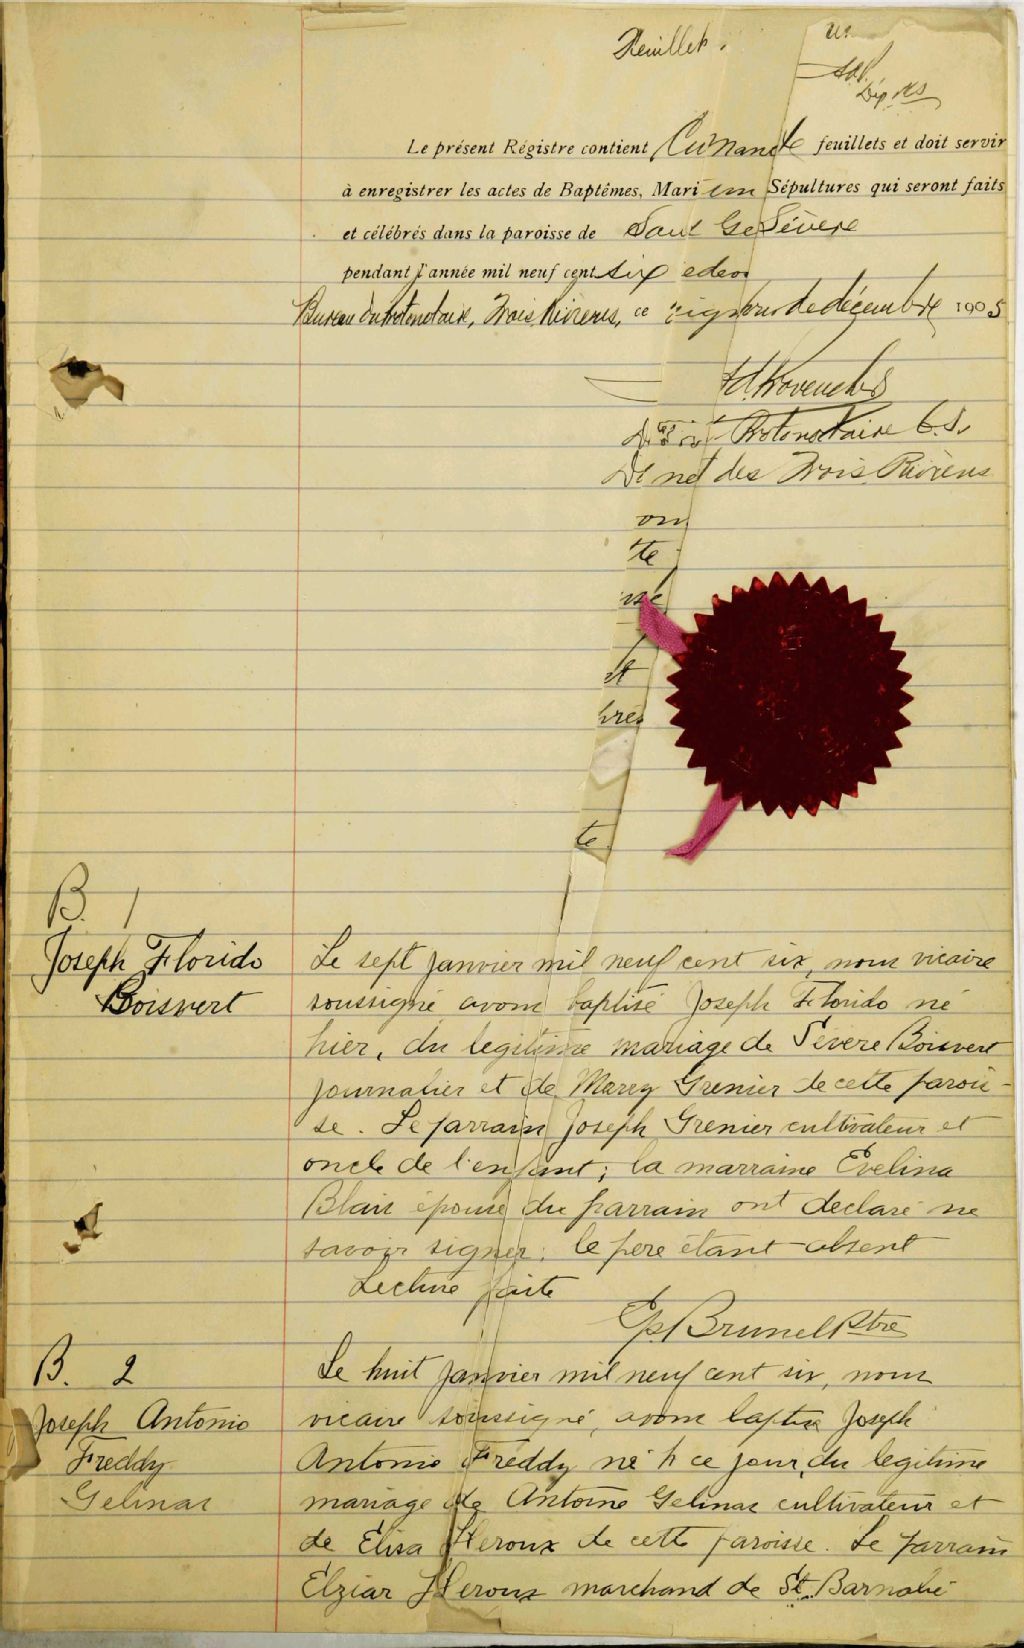 Feuillet.
Dép
Le présent Régistre contient feuillets et doit servir
à enregistrer les actes de Baptêmes, Mari Sépultures qui seront faits
et célébrés dans la paroisse de Sévère
pendant l'année mil neuf cent six
Bureau du Protonotaire, Trois Rivières, ce de décembre 1905
Protonotaire C.S.
des Trois Rivières
on
te
et
te
B. 1
Joseph Florido
Boisvert
Le sept janvier mil neuf cent six, nous vicaire
soussigné avons baptisé Joseph Florido né
hier, du legitime mariage de Sévère Boisvert
journalier et de Marey Grenier de cette parois-
se. Le parrain Joseph Grenier cultivateur et
oncle de l'enfant; la marraine Evelina
Blais épouse du parrain ont declaré ne
savoir signer; le pere étant absent
Lecture faite
Ep. Brunel Ptre
B. 2
Joseph Antonio
Freddy
Gelinas
Le huit janvier mil neuf cent six, nous
vicaire soussigné, avons baptisé Joseph
Antonio Freddy né ce jour, du legitime
mariage de Antoine Gelinas cultivateur et
de Elisa Heroux de cette paroisse. Le parrain
Elziar Heroux marchand de St. Barnabé